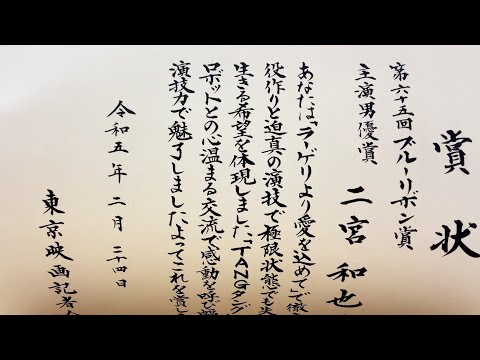 賞状
第六十五回 ブルーリボン賞
主演男優賞 二宮和也
あなたは「ラーゲリより愛を込めて」で徹
役作りと迫真の演技で極限状態でも
生きる希望を体現しました。「TANGタング」
ロボットとの心温まる交流で感動を呼び
演技力で魅了しました。よってこれを賞し
令和五年二月二十四日
東京映画記者